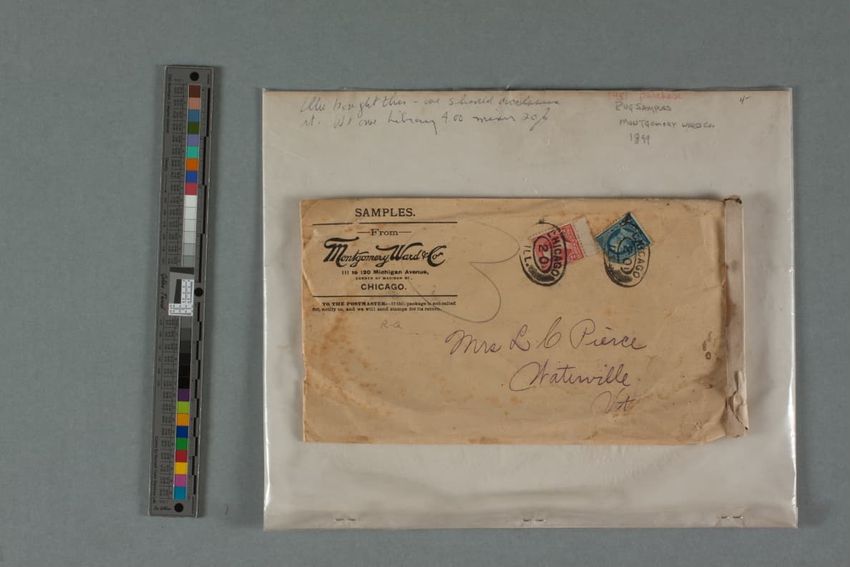 bought this - we shared
it. Library 4.00
1981 Purchase
RUG SAMPLES
MONTGOMERY WARD CO.
1899
SAMPLES.
—From—
Montgomery Ward & Co
111 to 120 Michigan Avenue,
CORNER OF MADISON ST.,
CHICAGO.
TO THE POSTMASTER:—If this package is not called
for, notify us, and we will send stamps for its return.
CHICAGO
20
ILL.
CHICAGO
Mrs L C Pierce
Waterville
Vt